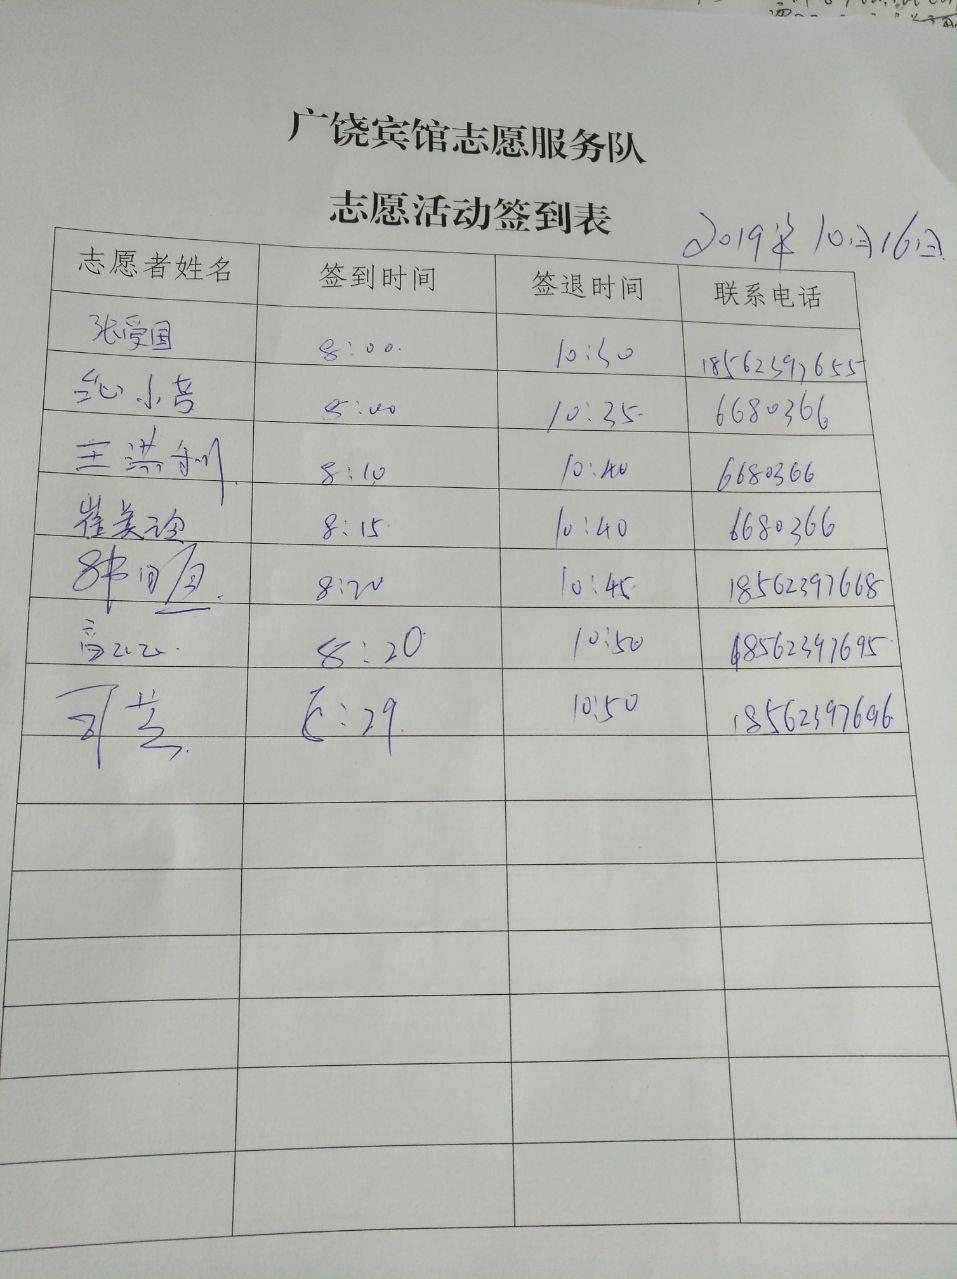 广饶宾馆志愿服务队
志愿活动签到表
2019年10月16日
志愿者姓名 签到时间 签退时间 联系电话
张受国 8:00 10:30 18562397655
小 8:00 10:35 6680366
王洪利 8:10 10:40 6680366
崔美玲 8:15 10:40 6680366
8:20 10:45 18562397668
高 8:20 10:50 18562397695
8:29 10:50 18562397696